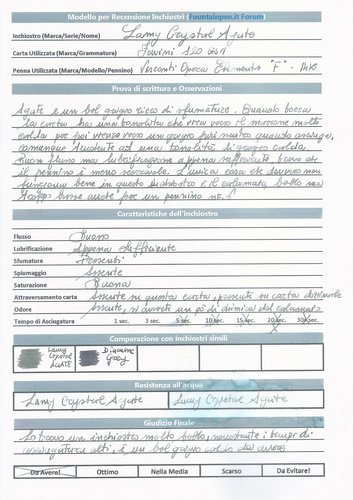 Modello per Recensione Inchiostri (Fountainpen.it Forum)
Inchiostro (Marca/Serie/Nome) Lamy Crystal Agate
Carta Utilizzata (Marca/Grammatura) Favini 120 gsm
Penna Utilizzata (Marca/Modello/Pennino) Visconti Opera Elements "F" - 14K
Prova di scrittura e Osservazioni
Agate è un bel grigio ricco di sfumature. Quando bacca
la carta ha una tonalità che vira verso il marrone molto
calda per poi virare verso un grigio più neutro quando asciuga,
comunque tendente ad una tonalità di grigio calda.
Buon flusso ma lubrificazione appena sufficiente, tanto che
il pennino è meno scorrevole. L'unica cosa che
bene in questo inchiostro è il calamaio bello ma
troppo bene anche per un pennino n.6
Caratteristiche dell'inchiostro
Flusso Buono
Lubrificazione Appena sufficiente
Sfumature Presenti
Spiumaggio Assente
Saturazione Buona
Attraversamento carta Assente su questa carta, presente su carta
Odore Assente, si avverte un pò di chimica dal calamaio
Tempo di Asciugatura 1 sec. 3 sec. 5 sec. 10 sec. 15 sec. 20 sec. 30 sec.
Comparazione con inchiostri simili
Lamy Crystal AGATE
Diamine Grey
Resistenza all'acqua
Lamy Crystal Agate Lamy Crystal Agate
Giudizio Finale
Lo trovo un inchiostro molto bello, nonostante i tempi di
asciugatura alti, è un bel grigio caldo da avere
Da Avere! Ottimo Nella Media Scarso Da Evitare!